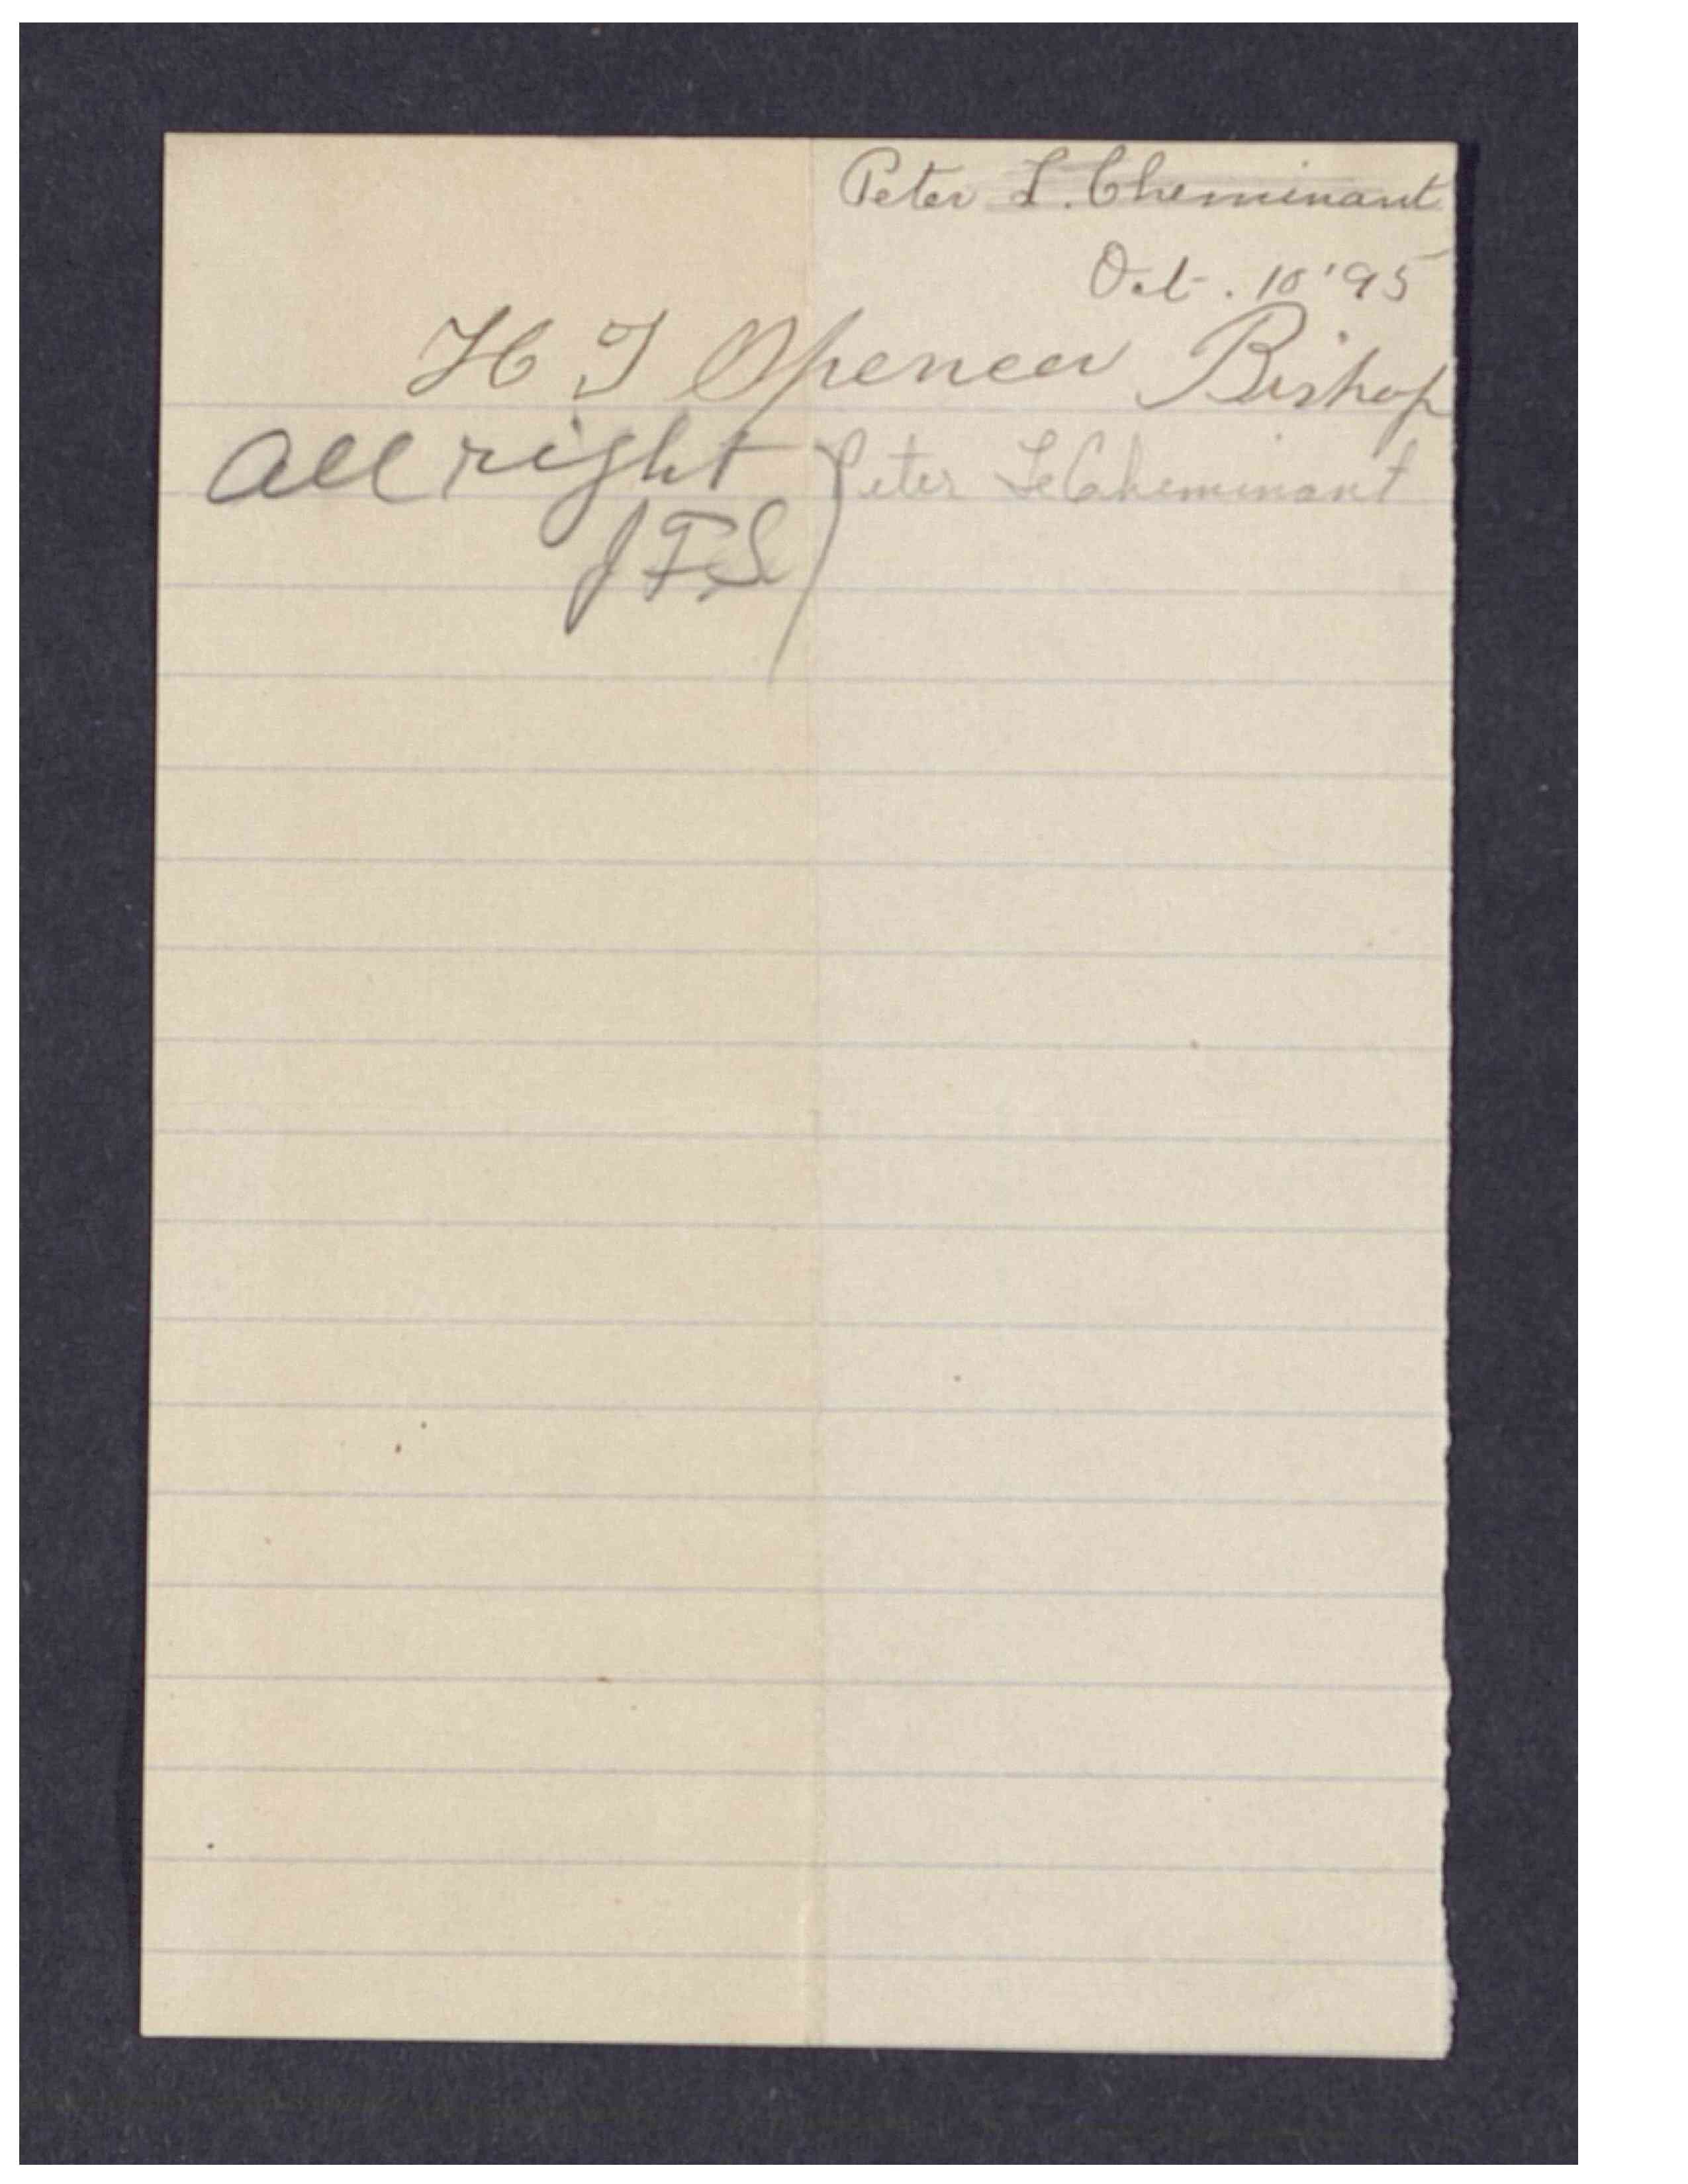 Peter L. Cheminant
Oct. 10 '95
H T Spencer Bishop
all right
Peter LeCheminant
JFS